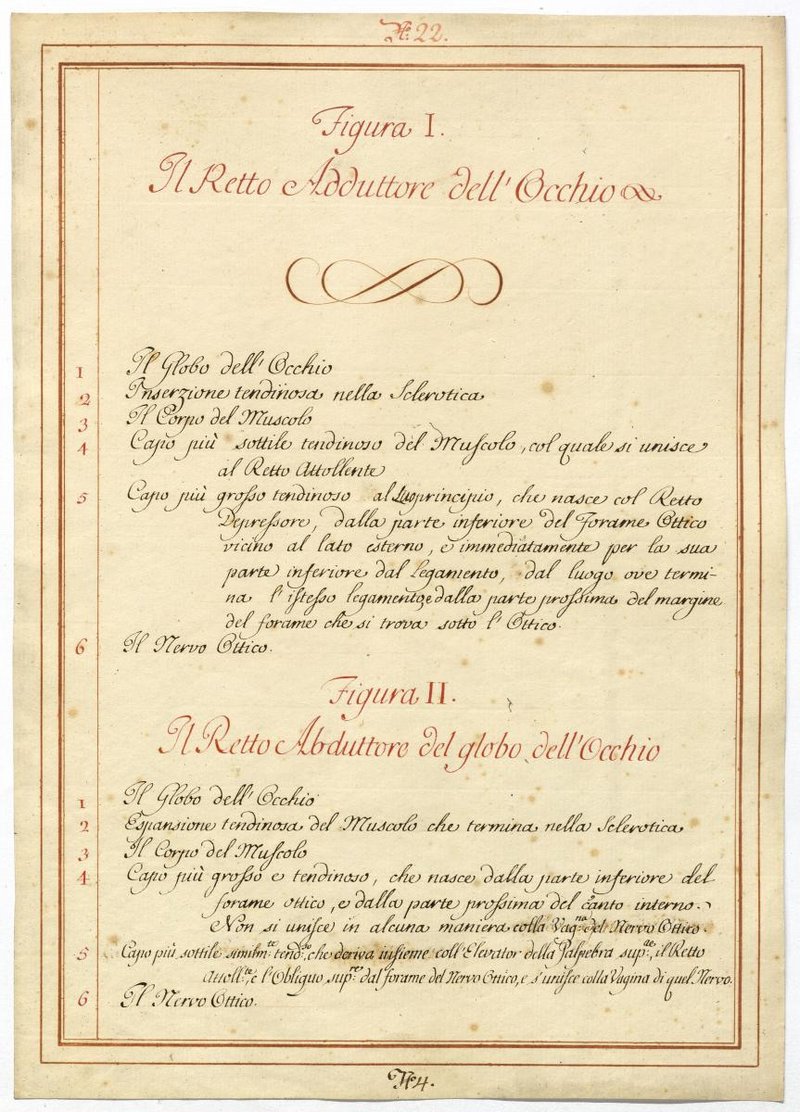 N.º 22.
Figura I.
Il Retto Adduttore dell' Occhio
1 Il Globo dell' Occhio
2 Inserzione tendinosa nella Sclerotica
3 Il Corpo del Muscolo
4 Capo più sottile tendinoso del Muſcolo, col quale si unisce
al Retto Attollente
5 Capo più grosso tendinoso al suo principio, che nasce col Retto
Depressore, dalla parte inferiore del Forame Ottico
vicino al lato esterno, e immediatamente per la sua
parte inferiore dal Legamento, dal luogo ove termi-
na l' iſtesso legamento, e dalla parte proſsima del margine
del forame che si trova sotto l' Ottico.
6 Il Nervo Ottico.
Figura II.
Il Retto Abduttore del globo dell' Occhio
1 Il Globo dell' Occhio
2 Espansione tendinosa del Muscolo che termina nella Sclerotica
3 Il Corpo del Muſcolo
4 Capo più grosso e tendinoso, che nasce dalla parte inferiore del
forame ottico, e dalla parte proſsima del canto interno.
Non si uniſce in alcuna maniera colla Vag:na del Nervo Ottico.
5 Capo più sottile similm:te tend:so, che deriva inſieme coll' Elevator della Palpebra sup:re, il Retto
Attoll:te, e l' Obliquo sup:re dal forame del Nervo Ottico, e s' uniſce colla Vagina di quel Nervo.
6 Il Nervo Ottico.
N.º 4.